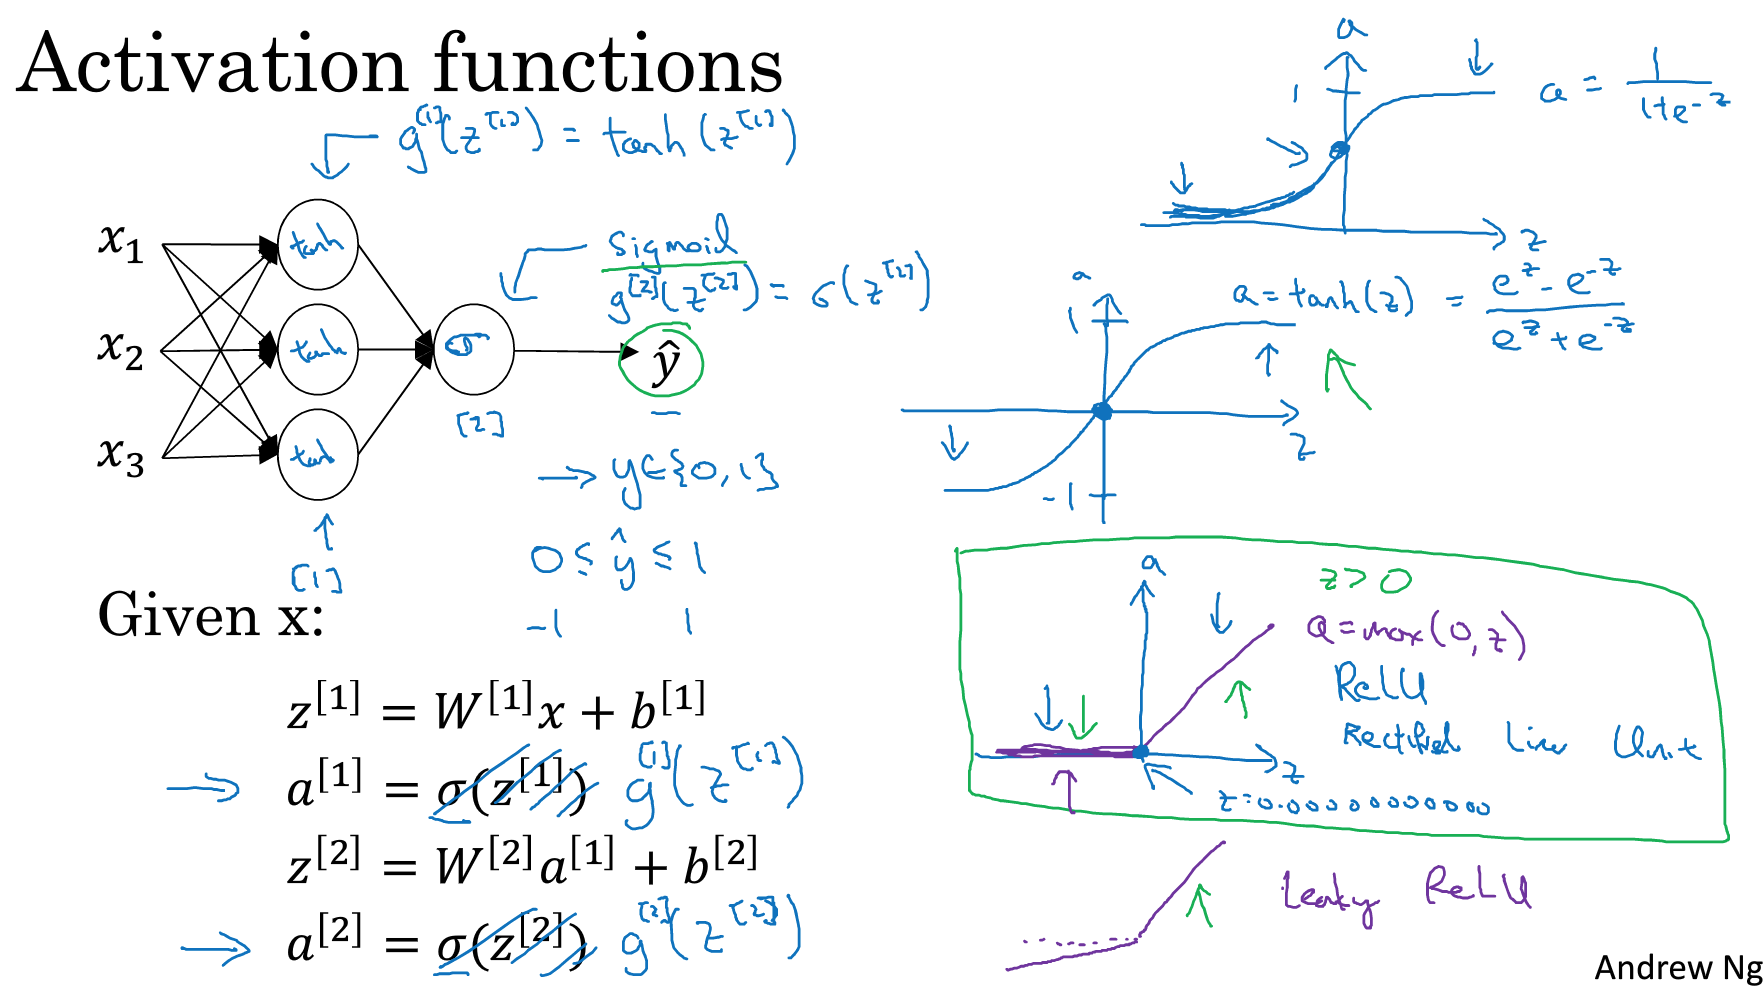 Activation functions
g^[1](z^[1]) = tanh(z^[1])
x₁
x₂
x₃
tanh
tanh
tanh
σ
[1]
[2]
sigmoid
g^[2](z^[2]) = σ(z^[2])
ŷ
→ y∈{0,1}
0 ≤ ŷ ≤ 1
-1 1
Given x:
z^[1] = W^[1]x + b^[1]
→ a^[1] = σ(z^[1]) g^[1](z^[1])
z^[2] = W^[2]a^[1] + b^[2]
→ a^[2] = σ(z^[2]) g^[2](z^[2])
a
1
z
a = 1/(1+e^-z)
a
1
-1
z
a = tanh(z) = (e^z - e^-z)/(e^z + e^-z)
a
z > 0
a = max(0,z)
ReLU
Rectified Linear Unit
z
z=0.00000000000
Leaky ReLU
Andrew Ng